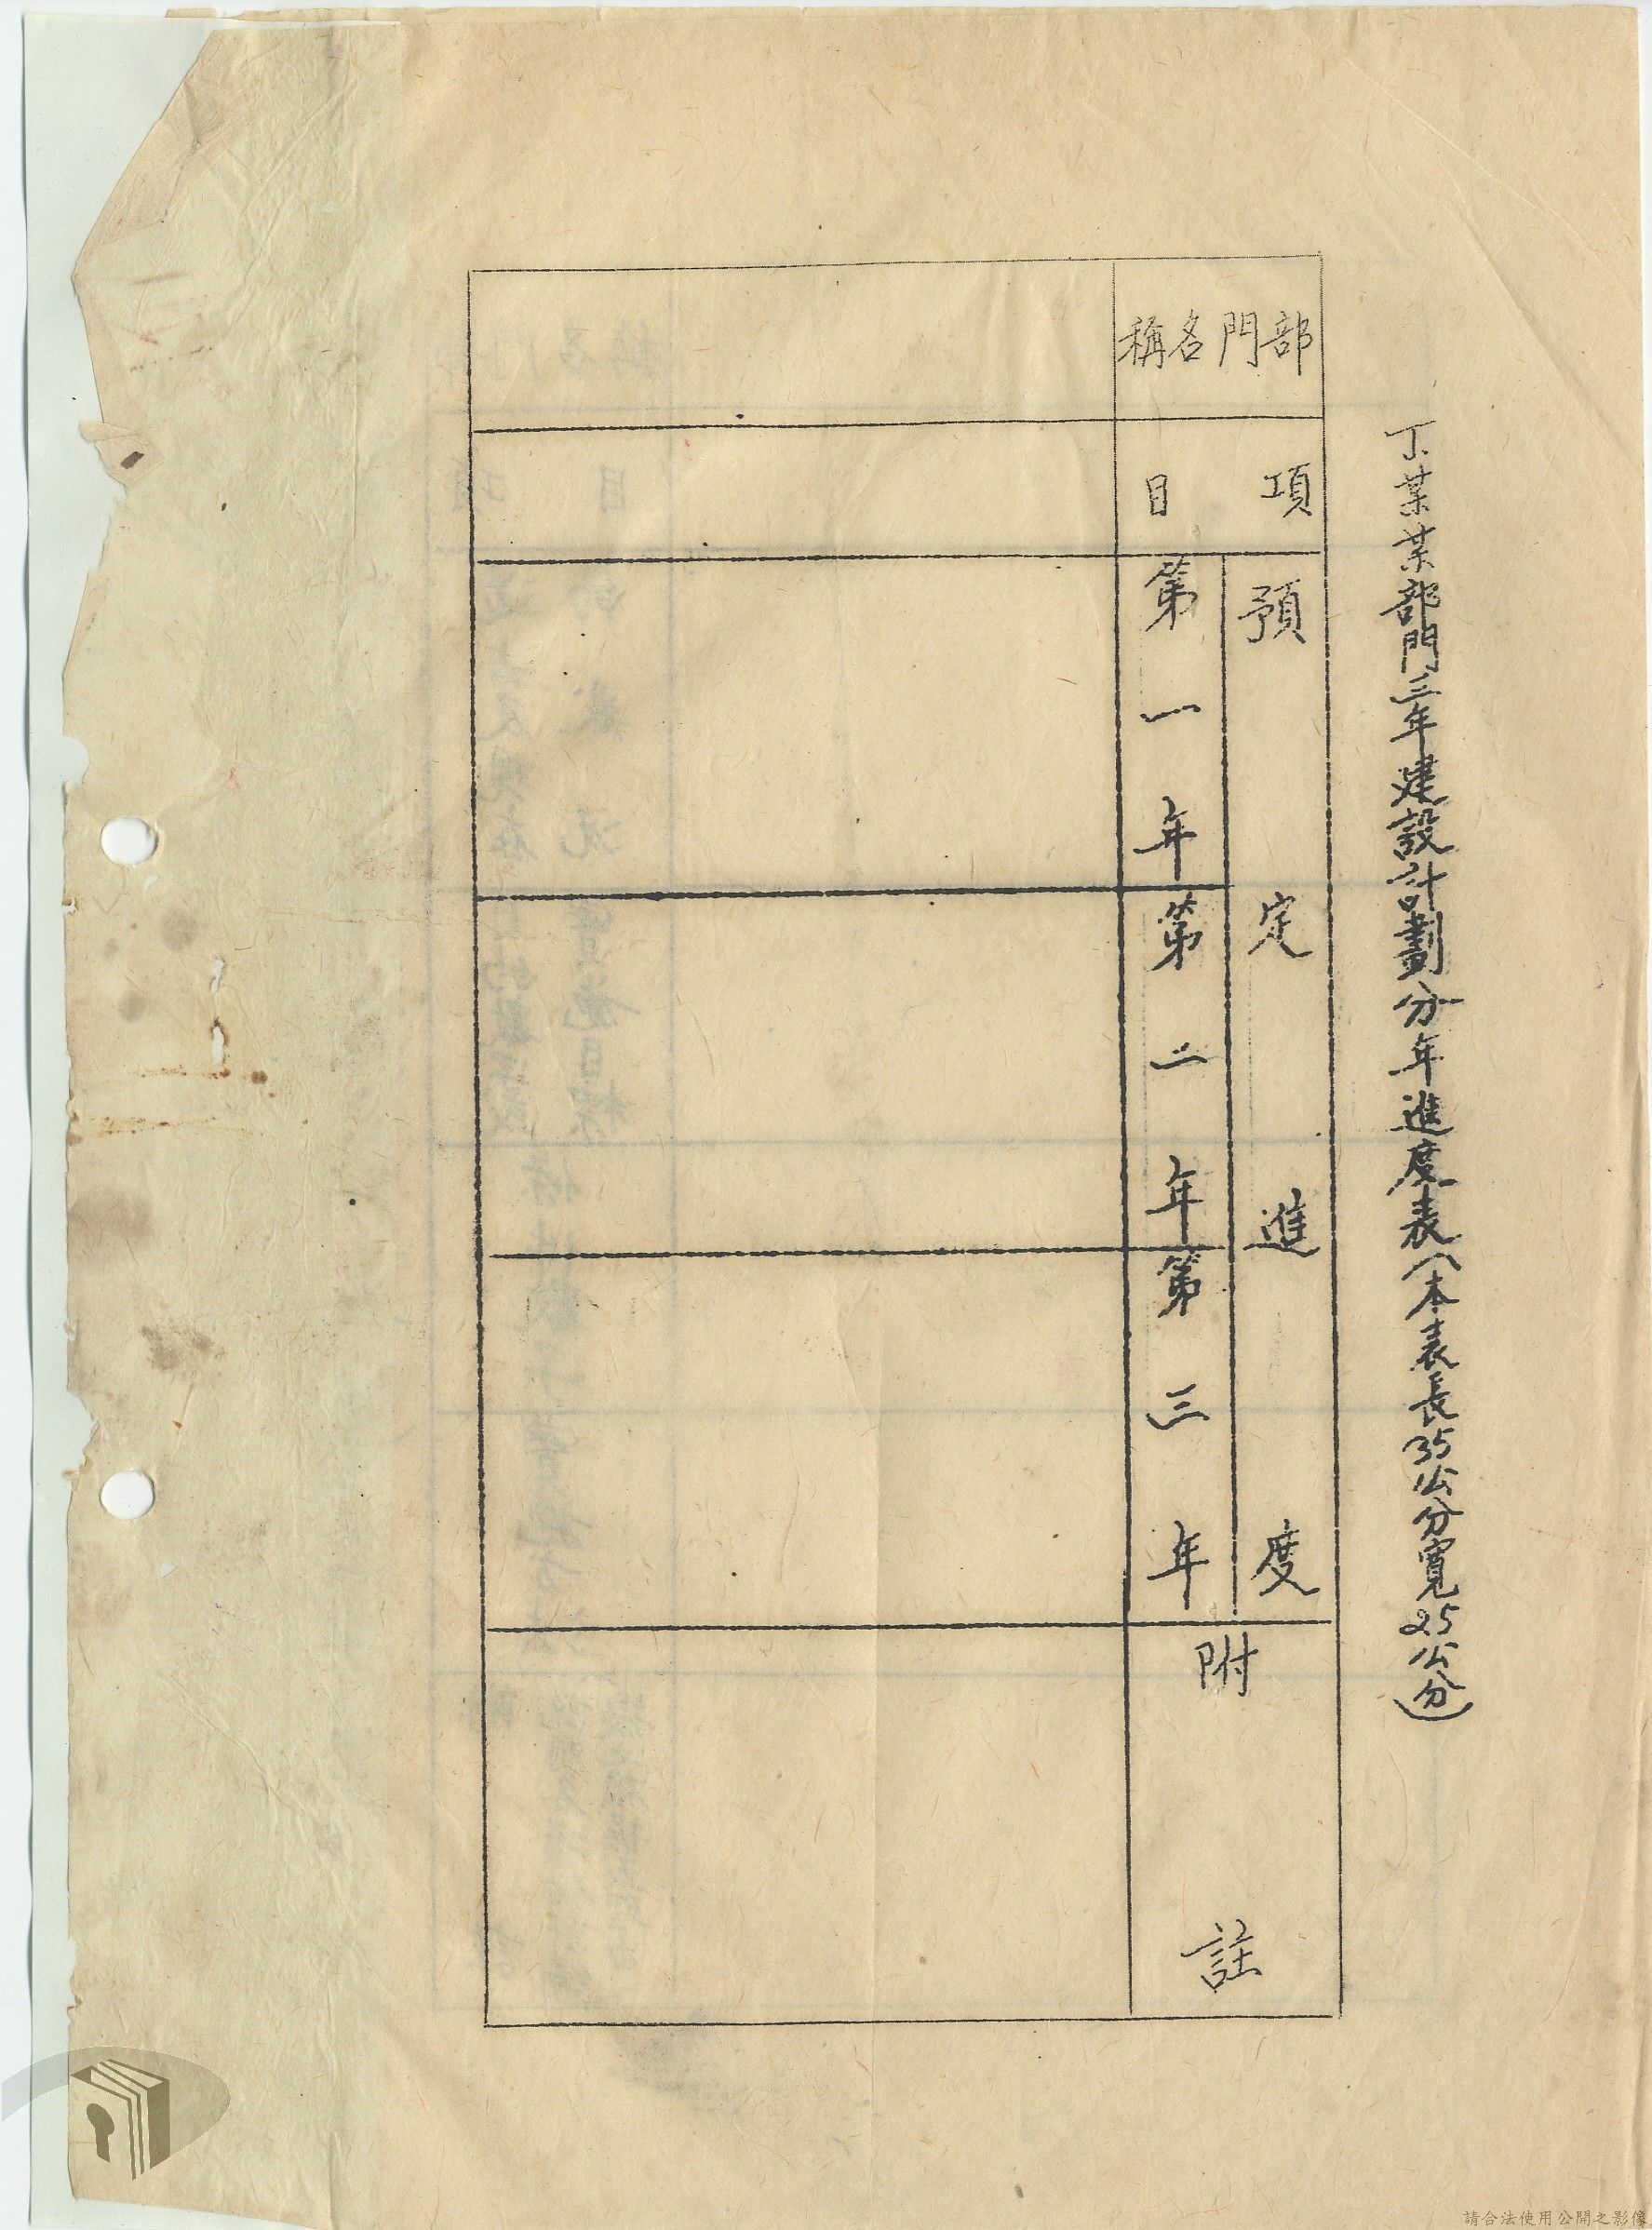 丁、某某部門三年建設計劃分年進度表（本表長35公分寬25公分）
部門名稱
項目
預定進度
第一年
第二年
第三年
附註
請合法使用公開之影像